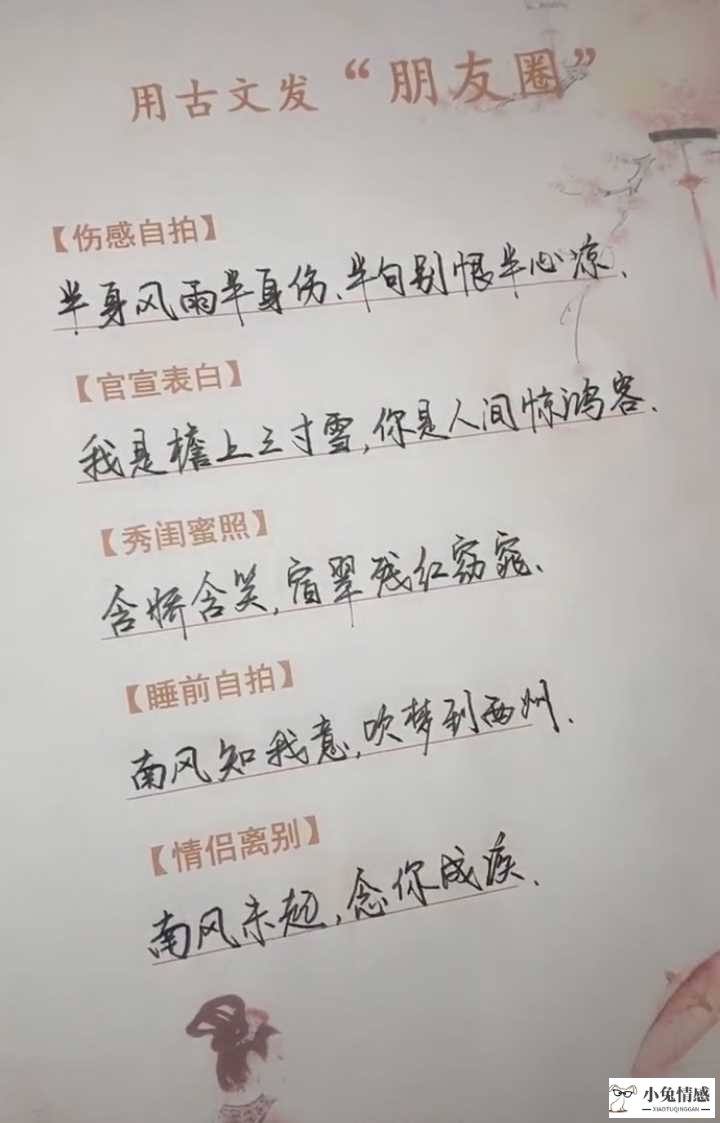 用古文发“朋友圈”
【伤感自拍】
半身风雨半身伤、半句别恨半心凉、
【官宣表白】
我是檐上三寸雪，你是人间惊鸿客、
【秀闺蜜照】
含娇含笑，宿翠残红窈窕、
【睡前自拍】
南风知我意，吹梦到西州、
【情侣离别】
南风未起，念你成疾、
小兔情感
XIAOTUQINGGAN